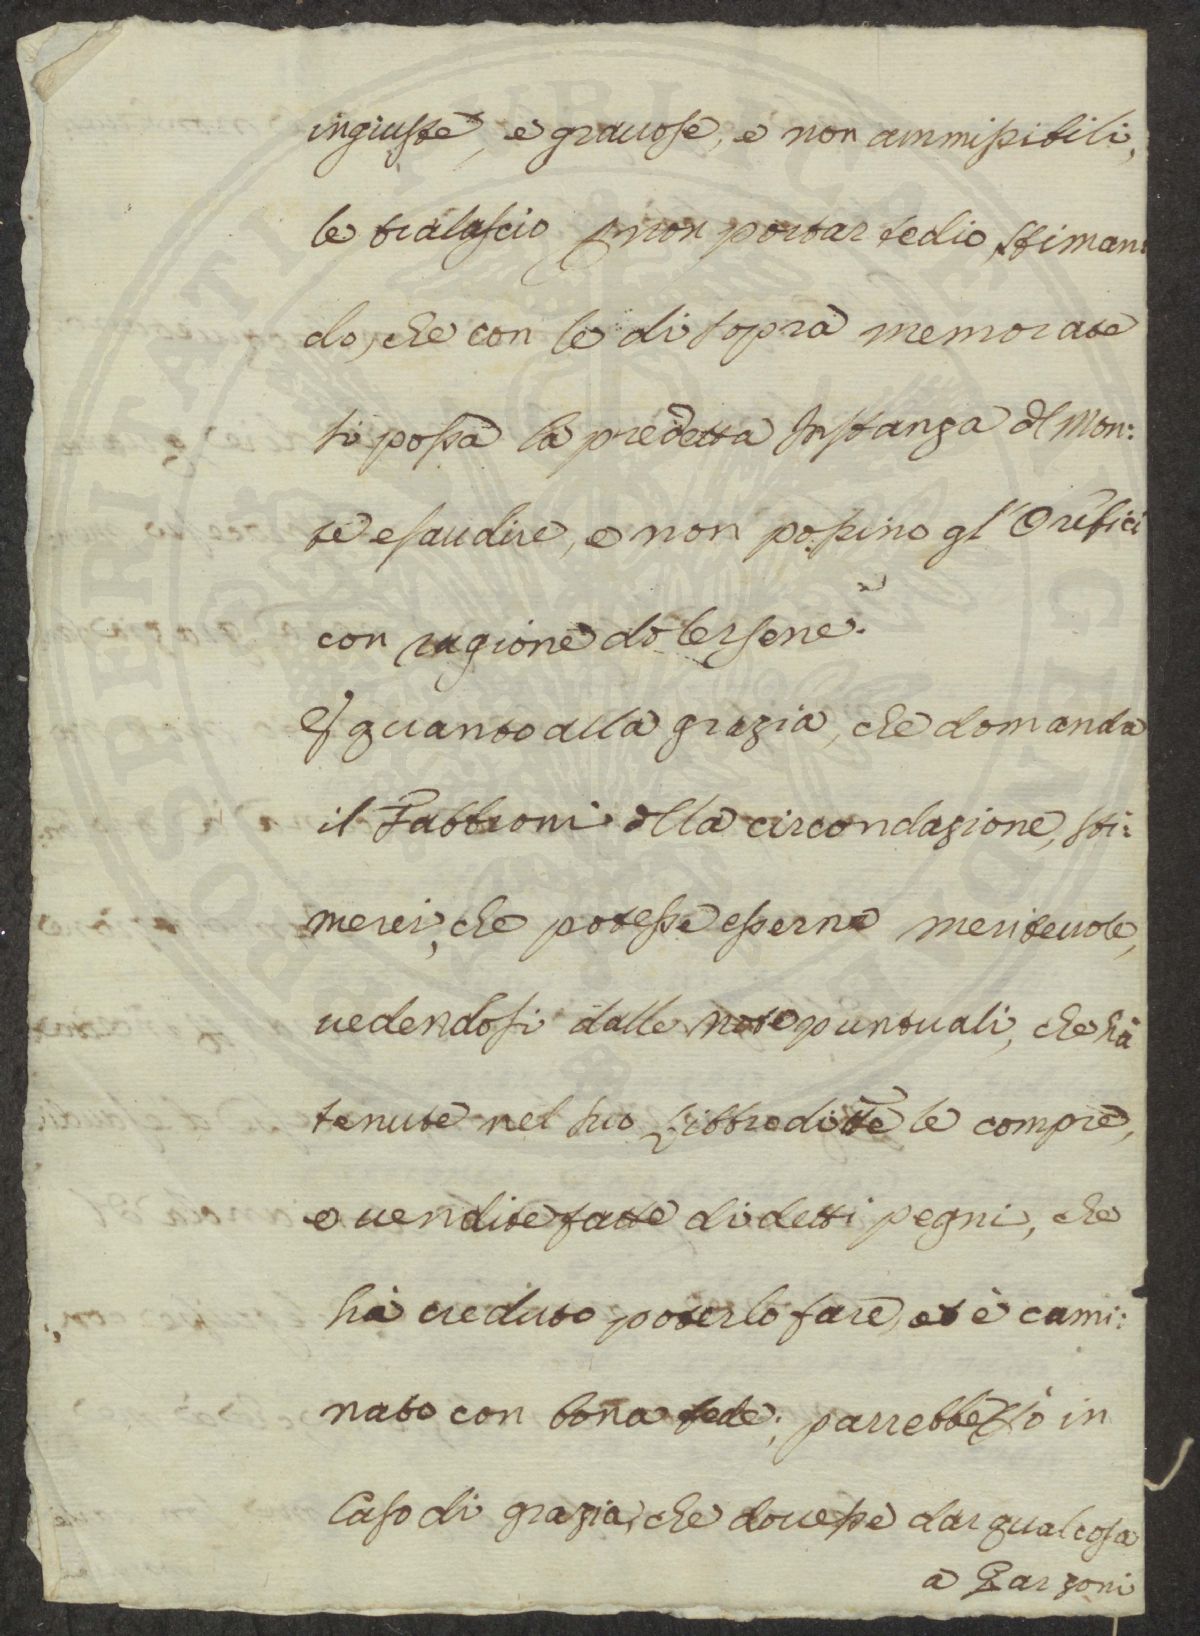 ingiuste, e grauose, e non ammissibili,
le tralascio p non portar tedio, stiman:
do, che con le di sopra memorate
si possa la predetta Instanza dl Mon:
te esaudire, e non possino gl' Orefici
con ragione dolersene.
E quanto alla grazia, che domanda
il Fabbroni dlla circondazione, sti:
merei, che potesse esserne meriteuole,
uedendosi dalle note puntuali, che hà
tenute nel suo Libbro di tte le compre,
e uendite fatte di detti pegni, che
hà creduto poterlo fare, et è cami:
nato con bona fede; parrebbe in
Caso di grazia, che douesse dar qualcosa
a Garzoni
PUBLICAE FELICITATI